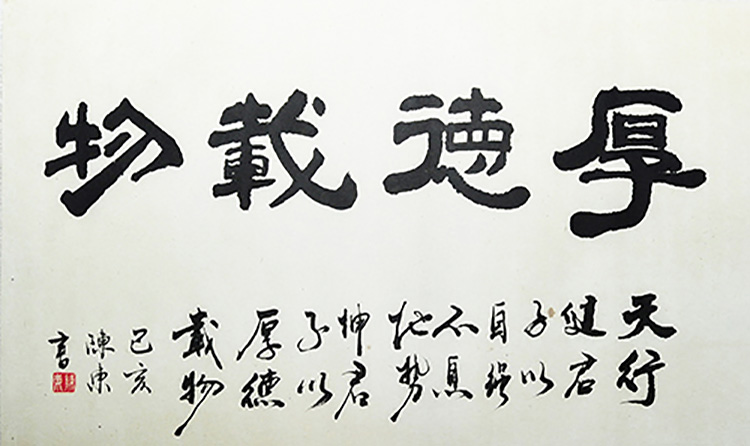 厚德載物
天行
健君
子以
自强
不息
地勢
坤君
子以
厚德
載物
己亥
陳東
書